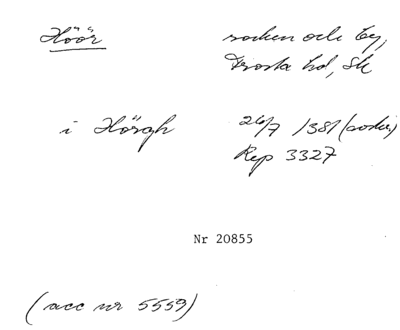 Höör socken och by,
Frosta hd, Sk
i Hörgh 26/7 1381 (vodis)
Rep 3327
Nr 20855
(acc nr 5559)